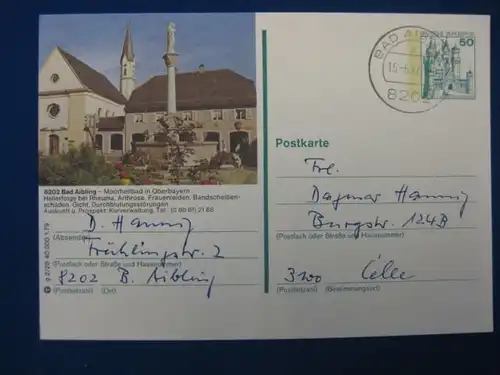 BAD AIBLING
8202
50
8202 Bad Aibling – Moorheilbad in Oberbayern
Heilerfolge bei Rheuma, Arthrose, Frauenleiden, Bandscheiben-
schäden, Gicht, Durchblutungsstörungen
Auskunft u. Prospekt: Kurverwaltung, Tel. (0 80 61) 21 66
Postkarte
D. Hannig
(Absender)
Frühlingstr. 2
(Postfach oder Straße und Hausnummer)
8202 B. Aibling
(Postleitzahl) (Ort)
Frl.
Dagmar Hannig
Burgstr. 124B
(Postfach oder Straße und Hausnummer)
3100 Celle
(Postleitzahl) (Bestimmungsort)